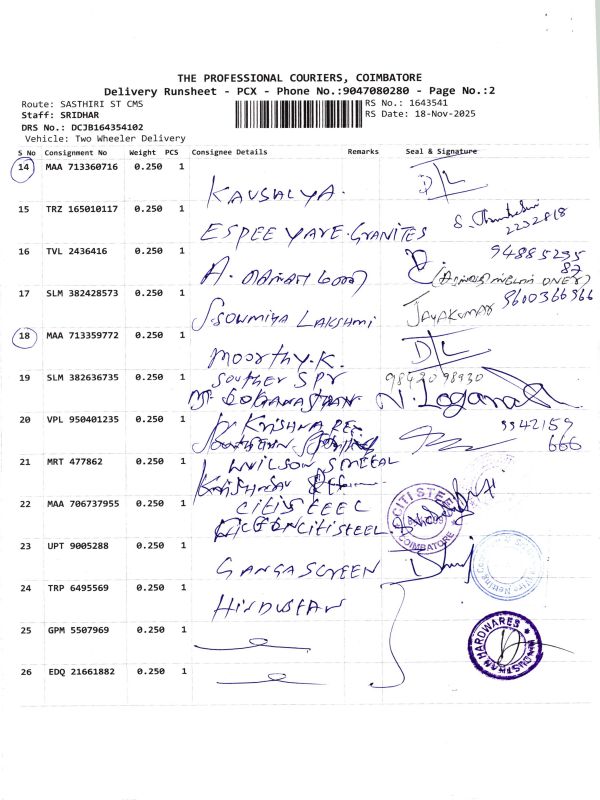 THE PROFESSIONAL COURIERS, COIMBATORE
Delivery Runsheet - PCX - Phone No.:9047080280 - Page No.:2
Route: SASTHIRI ST CMS
RS No.: 1643541
Staff: SRIDHAR
RS Date: 18-Nov-2025
DRS No.: DCJB164354102
Vehicle: Two Wheeler Delivery
S No Consignment No Weight PCS Consignee Details Remarks Seal & Signature
14 MAA 713360716 0.250 1 KAUSALYA. D/L
15 TRZ 165010117 0.250 1 ESPEE YARE. GRANITES
16 TVL 2436416 0.250 1 94885235
87
17 SLM 382428573 0.250 1 S. SOWMIYA LAKSHMI JAYAKUMAR 9600366366
18 MAA 713359772 0.250 1 MOORTHY. K. D/L
19 SLM 382636735 1 0.250 SOUTHER SPY 9842098930
20 VPL 950401235 0.250 1 KRISHNA 9342159
666
21 MRT 477862 0.250 1 WILSON
22 MAA 706737955 0.250 1 CITISTEEL
CITISTEEL CITI STEEL COIMBATORE
23 UPT 9005288 0.250 1 GANGA SCREEN
24 TRP 6495569 0.250 1 HINDUSTAN
25 GPM 5507969 0.250 1
HINDUSTHAN HARDWARES
26 EDQ 21661882 0.250 1